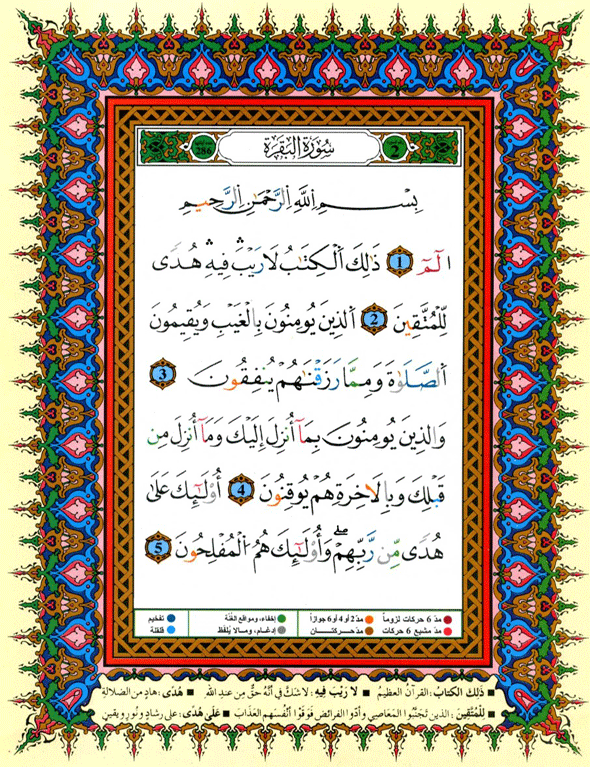 2 سُورَةُ الْبَقَرَة 286
بِسْمِ اِللَّهِ اِلرَّحْمَٰنِ اِلرَّحِيمِ
الٓمٓ 1 ذَٰلِكَ اَلْكِتَٰبُ لَا رَيْبَۛ فِيهِۛ هُدًى
لِّلْمُتَّقِينَ 2 اَلذِينَ يُومِنُونَ بِالْغَيْبِ وَيُقِيمُونَ
اَلصَّلَوٰةَ وَمِمَّا رَزَقْنَٰهُمْ يُنفِقُونَ 3
وَالذِينَ يُومِنُونَ بِمَآ أُنزِلَ إِلَيْكَ وَمَآ أُنزِلَ مِن
قَبْلِكَ وَبِالَاخِرَةِ هُمْ يُوقِنُونَ 4 أُوْلَٰٓئِكَ عَلَىٰ
هُدًى مِّن رَّبِّهِمْۖ وَأُوْلَٰٓئِكَ هُمُ اُلْمُفْلِحُونَ 5
مدّ 6 حركات لزوماً مدّ 2 أو 4 أو 6 جوازاً إخفاء، ومواقع الغُنّة تفخيم
مدّ مشبع 6 حركات مدّ حركتان إدغام، وما لا يُلفَظ قلقلة
ذَلِكَ الكتابُ: القرآنُ العظيمُ لا رَيْبَ فِيهِ: لا شكَّ في أنّهُ حقٌّ من عندِ اللهِ هُدًى: هادٍ من الضلالةِ
لِلْمُتَّقِينَ: الذين تجنّبُوا المعاصيَ وأدّوا الفرائضَ فوَقَوْا أنفُسَهم العذابَ عَلَى هُدًى: على رشادٍ ونُورٍ ويقينٍ